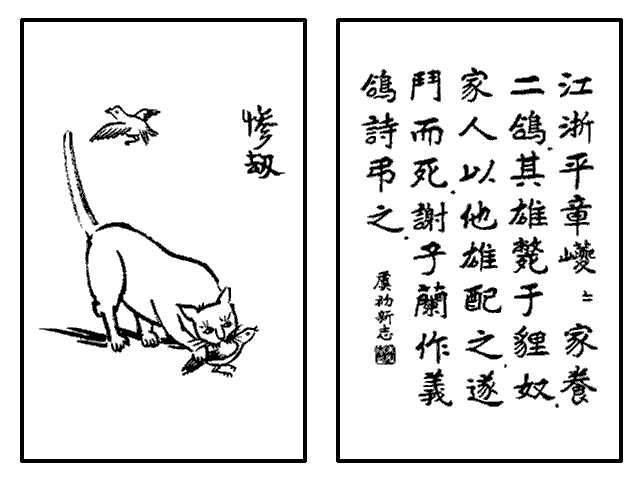 慘刼
江浙平章巙〻家養.
二鴿其雄斃于貍奴.
家人以他雄配之.遂
鬥而死.謝子蘭作義
鴿詩弔之.
虞初新志